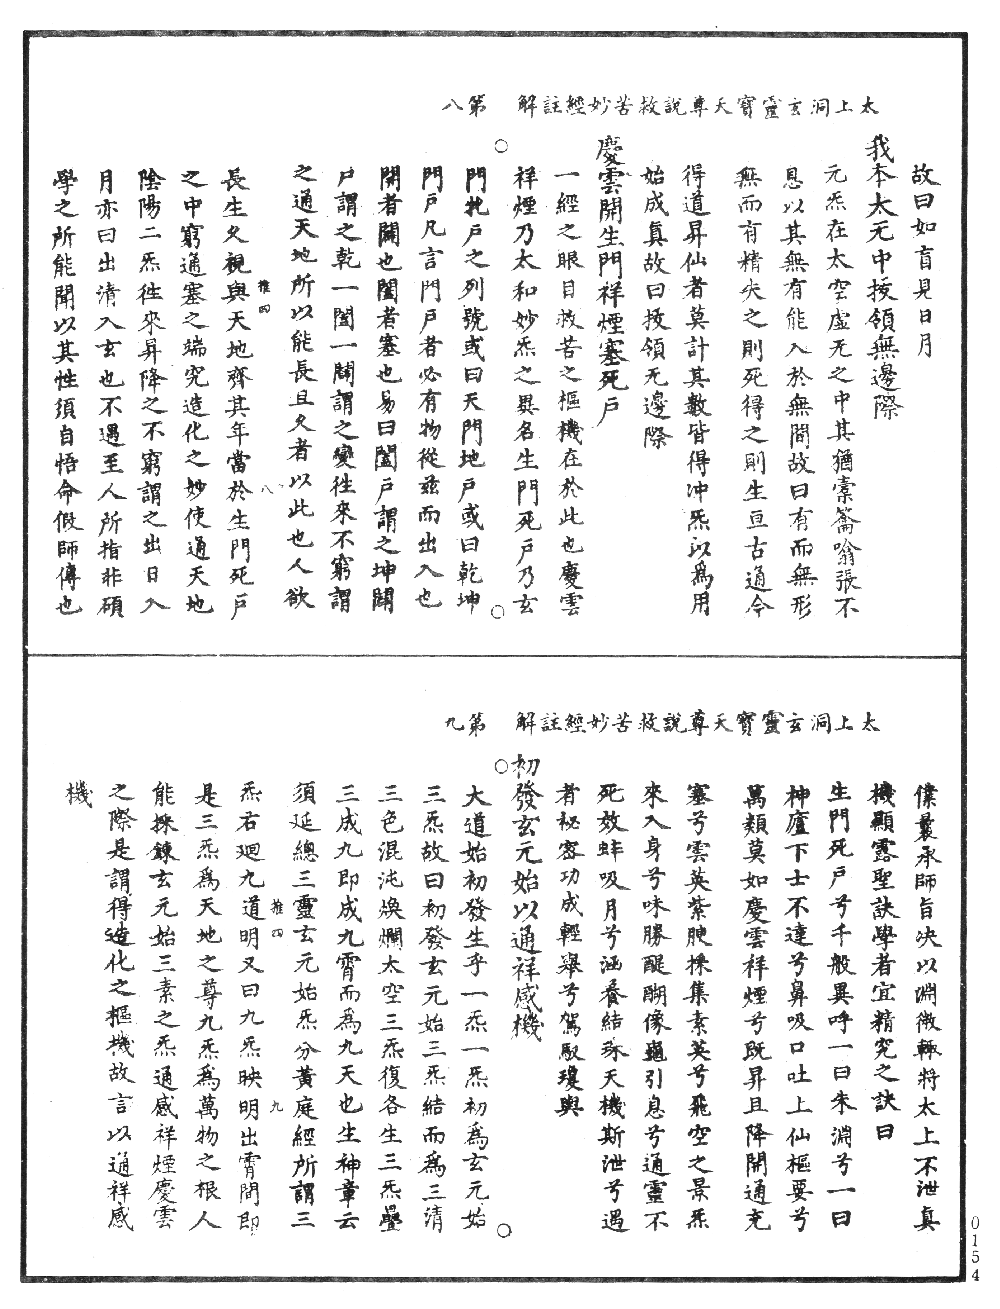 太上洞玄靈寶天尊說救苦妙經註解　第八
故曰如盲見日月
我本太无中拔領無邊際
元炁在太空虛无之中其猶橐籥噏張不
息以其無有能入於無間故曰有而無形
無而有精失之則死得之則生亘古通今
得道昇仙者莫計其數皆得冲炁以為用
始成真故曰拔領无邊際
慶雲開生門祥煙塞死戶
一經之眼目救苦之樞機在於此也慶雲
祥煙乃太和妙炁之異名生門死戶乃玄
門牝戶之列號或曰天門地戶或曰乾坤
門戶凡言門戶者必有物從兹而出入也
開者闢也闔者塞也易曰闔戶謂之坤闢
戶謂之乾一闔一闢謂之變往來不窮謂
之通天地所以能長且久者以此也人欲
推四　八
長生久視與天地齊其年當於生門死戶
之中窮通塞之端究造化之妙使通天地
陰陽二炁往來昇降之不窮謂之出日入
月亦曰出清入玄也不遇至人所指非碩
學之所能聞以其性須自悟命假師傳也
太上洞玄靈寶天尊說救苦妙經註解　第九
僕曩承師旨決以淵微輙將太上不泄真
機顯露聖訣學者宜精究之訣曰
生門死戶兮千般異呼一曰朱淵兮一曰
神廬下士不達兮鼻吸口吐上仙樞要兮
萬類莫如慶雲祥煙兮既昇且降開通充
塞兮雲英紫腴採集素英兮飛空之景炁
來入身兮味勝醍醐像龜引息兮通靈不
死效蚌吸月兮涵養結珠天機斯泄兮遇
者祕密功成輕舉兮駕馭瓊輿
初發玄元始以通祥感機
大道始初發生乎一炁一炁初為玄元始
三炁故曰初發玄元始三炁結而為三清
三色混沌煥爛太空三炁復各生三炁疊
三成九即成九霄而為九天也生神章云
須延總三靈玄元始炁分黃庭經所謂三
推四　九
炁右廻九道明又曰九炁映明出霄間即
是三炁為天地之尊九炁為萬物之根人
能採鍊玄元始三素之炁通感祥煙慶雲
之際是謂得造化之樞機故言以通祥感
機
0154